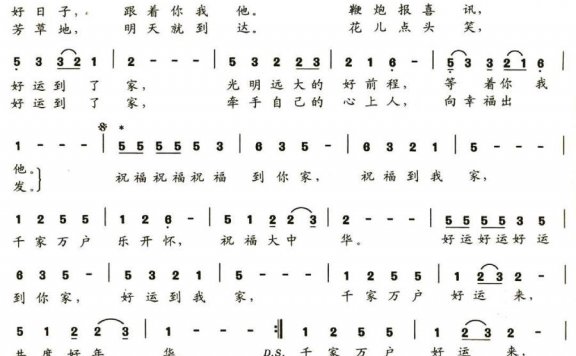 好日子， 跟着你我他。 鞭炮报喜讯，
芳草地， 明天就到达。 花儿点头笑，
5 3 3 2 1 | 2 - - - | 5 3 2 2 3 | 5 2 1 - | 5 3 3 2 1 6 |
好运到了家， 光明远大的好前程， 等着你我
好运到了家， 牵手自己的心上人， 向幸福出
1 - - - | 5 5 5 5 5 3 | 6 3 5 - | 5 3 2 1 | 6 3 5 - |
他。 祝福祝福祝福 到你家， 祝福到我家，
发。
1 2 5 5 | 1 2 6 - | 5 1 2 2 3 | 2 - - - | 5 5 5 5 5 3 |
千家万户 乐开怀， 祝福大中华。 好运好运好运
6 3 5 - | 5 3 2 1 | 6 3 5 - | 1 2 5 5 | 1 2 3 2 - |
到你家， 好运到我家， 千家万户 好运来，
5 1 2 2 3 | 1 - - - :| 5 3 2 1 | 1 2 3 2 - |
共度好年华 D.S. 千家万户 好运来，